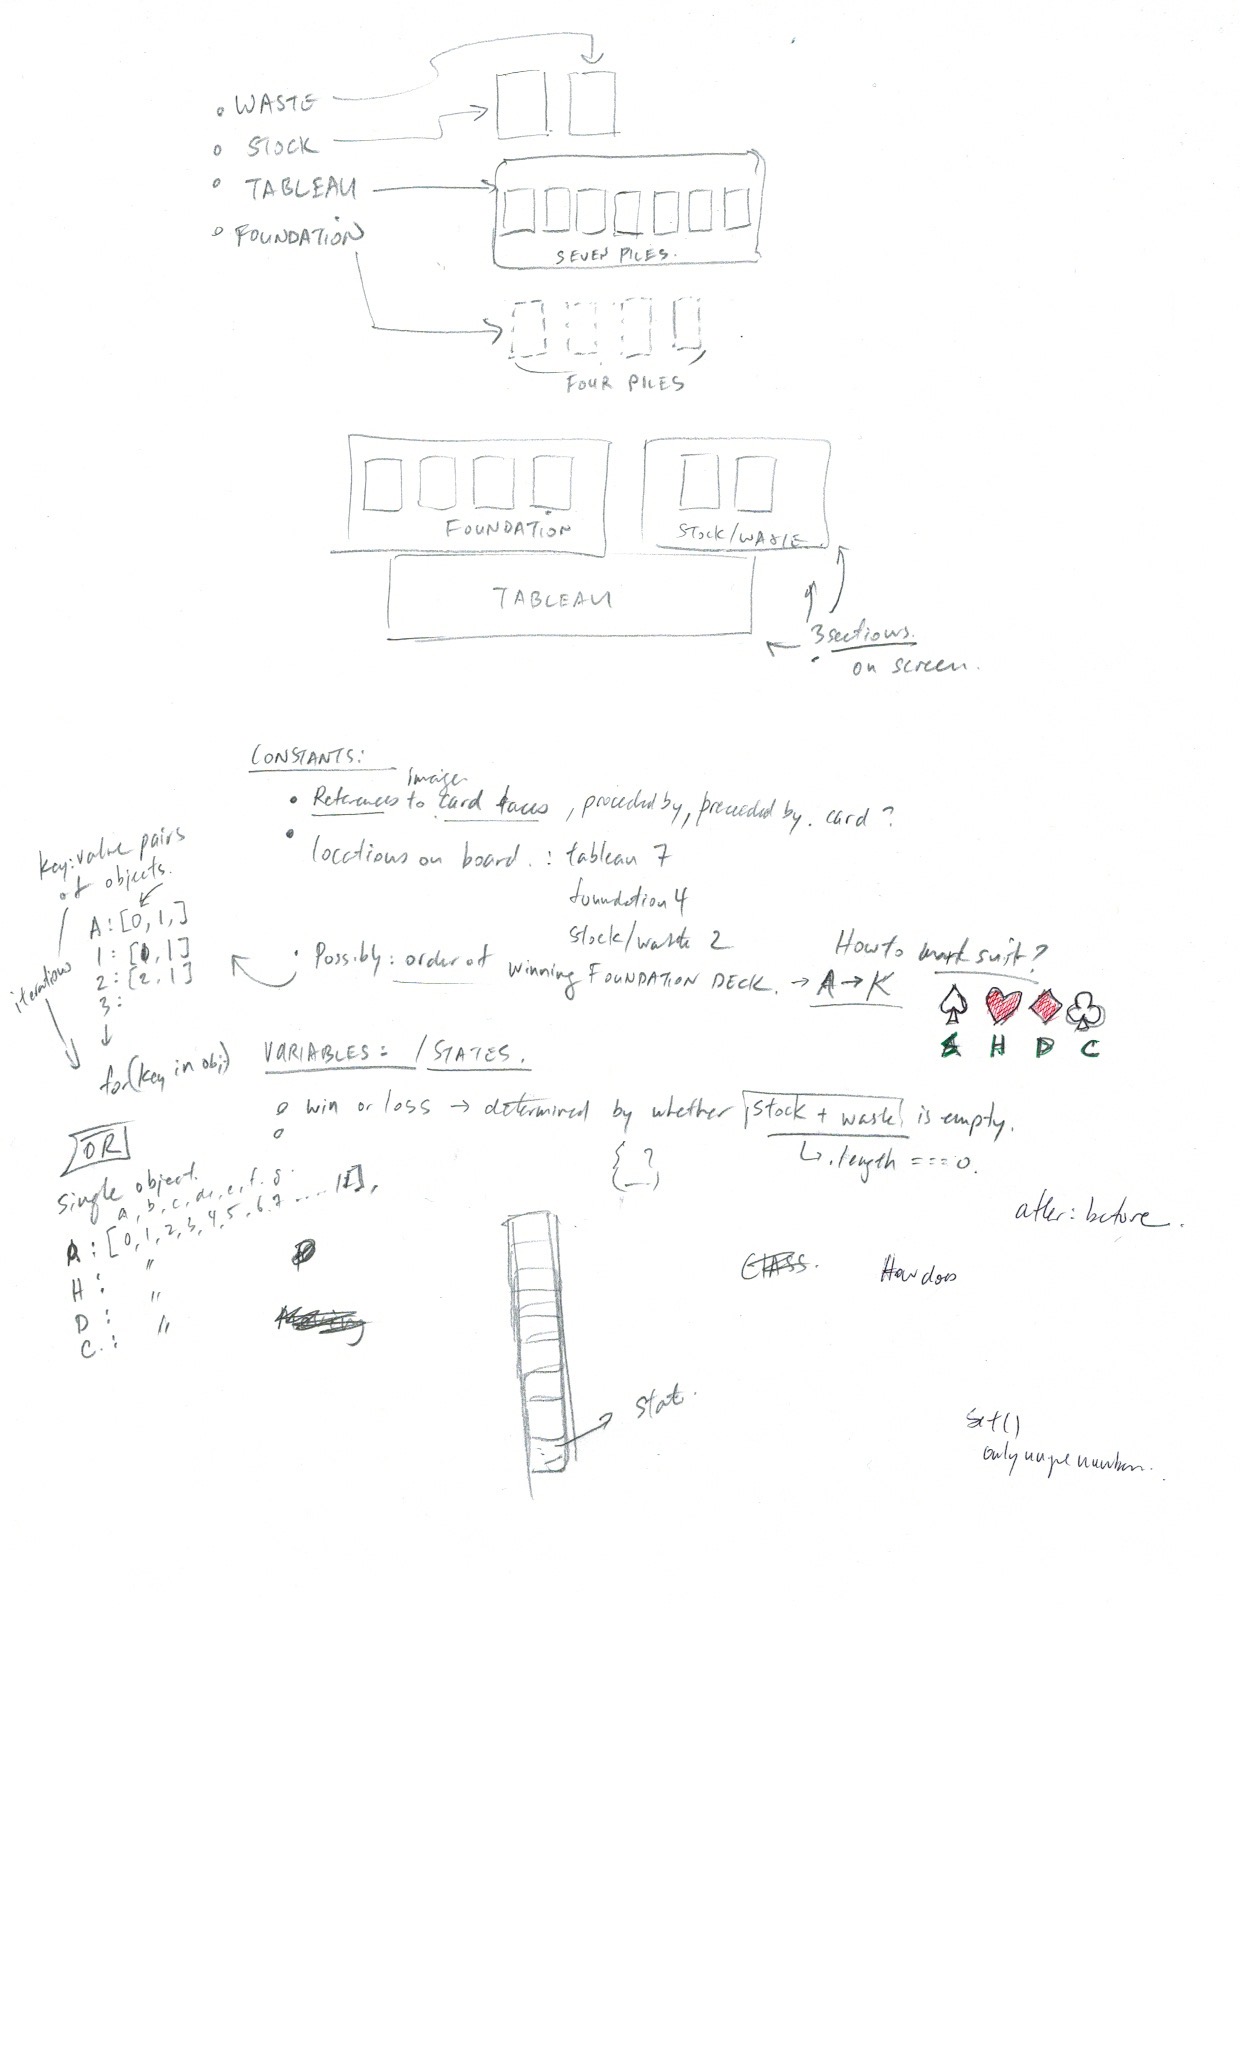 WASTE
STOCK
TABLEAU
FOUNDATION
SEVEN PILES.
FOUR PILES
FOUNDATION
STOCK/WASTE
TABLEAU
3 sections.
on screen.
CONSTANTS:
image
References to card faces, proceded by, preceded by. card?
locations on board. : tableau 7
foundation 4
stock/waste 2
Possibly: order of winning FOUNDATION DECK. → A → K
How to mark suit?
S H D C
key:value pairs
of objects.
A: [0, 1,]
1: [0, 1]
2: [2, 1]
3:
iterations
for(key in obj)
VARIABLES: / STATES.
win or loss → determined by whether stock + waste is empty.
.length === 0.
{ ?
OR
single object.
a, b, c, d, e, f, g
: [0, 1, 2, 3, 4, 5, 6, 7 .... 12],
H: "
D: "
C.: "
after: before.
CLASS.
How does
stat.
set()
only unique numbers.